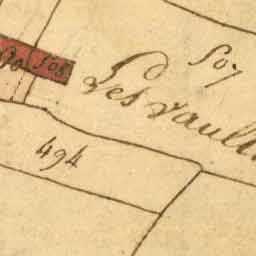 507
508
Les vault
494